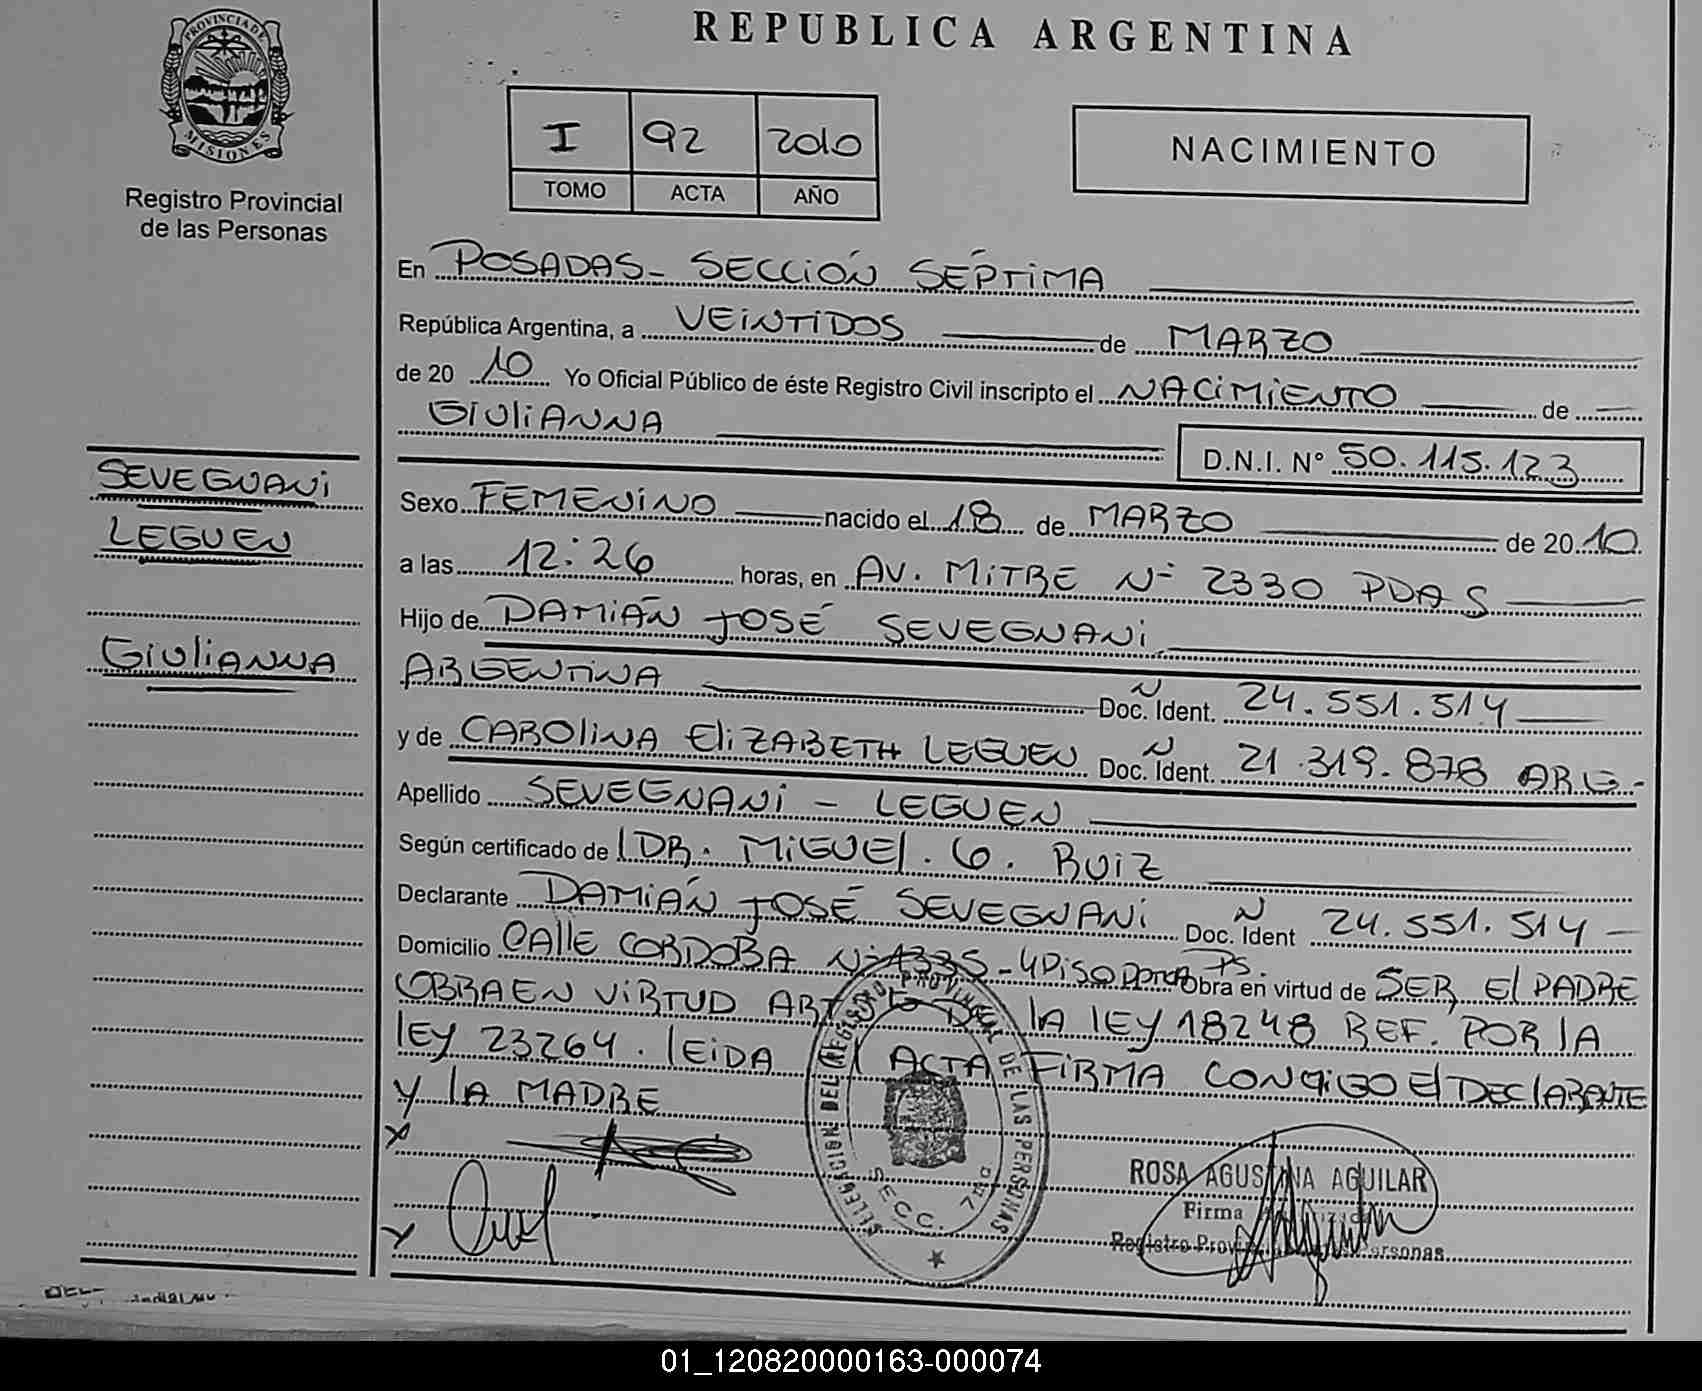 REPUBLICA ARGENTINA
PROVINCIA DE MISIONES
Registro Provincial
de las Personas
I 92 2010
TOMO ACTA AÑO
NACIMIENTO
En POSADAS- SECCIÓN SÉPTIMA
República Argentina, a VEINTIDOS de MARZO
de 20 10 Yo Oficial Público de éste Registro Civil inscripto el NACIMIENTO de
GIULIANNA
D.N.I. N° 50.115.123
SEVEGNANI
LEGUEN
GIULIANNA
Sexo FEMENINO nacido el 18 de MARZO de 20 10
a las 12:26 horas, en AV. MITRE N° 2330 PDAS
Hijo de DAMIÁN JOSÉ SEVEGNANI
ARGENTINA Doc. Ident. 24.551.514
y de CAROLINA ELIZABETH LEGUEN Doc. Ident. 21.319.878 ARG-
Apellido SEVEGNANI - LEGUEN
Según certificado de DR. MIGUEL. G. RUIZ
Declarante DAMIÁN JOSÉ SEVEGNANI Doc. Ident 24.551.514
Domicilio CALLE CORDOBA N° 1335-4 PISO Obra en virtud de SER EL PADRE
OBRA EN VIRTUD ART DE LA LEY 18248 REF. POR LA
LEY 23264. LEIDA EL ACTA FIRMA CONMIGO EL DECLARANTE
Y LA MADRE
DELEGACION DEL REGISTRO PROVINCIAL DE LAS PERSONAS
SECC. 7ma
ROSA AGUSTINA AGUILAR
Firma
Registro Provincial Personas
01_120820000163-000074